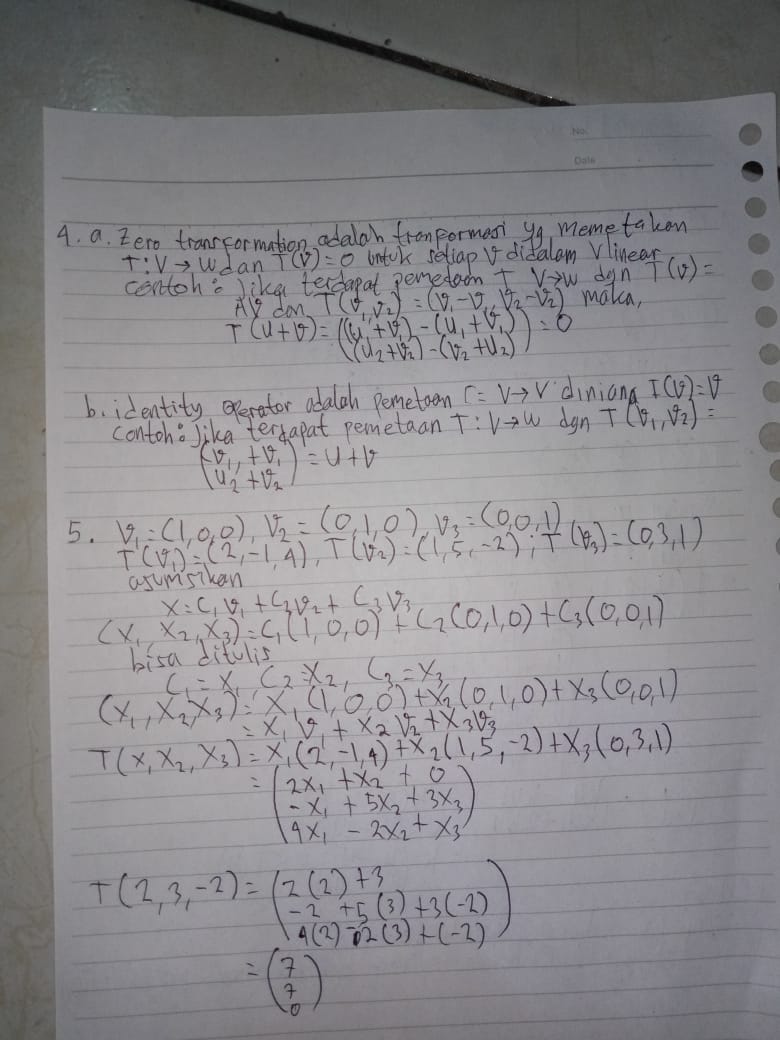 No.
Date
4. a. Zero transformation adalah tranformasi yg memetakan
T: V → W dan T(v) = 0 untuk setiap v didalam V linear
contoh: Jika terdapat pemetaan T V→W dgn T(v) =
Av dan T(v₁, v₂) = (v₁-v₁, v₂-v₂) maka,
T(u+v) = ((u₁+v₁) - (u₁+v₁)
(u₂+v₂) - (v₂+u₂)) = 0
b. identity operator adalah pemetaan I = V→V diniana I(v) = v
contoh: Jika terdapat pemetaan T: V→W dgn T(v₁, v₂) =
(v₁, + v₁
u₂ + v₂) = u+v
5. v₁ = (1,0,0), v₂ = (0,1,0), v₃ = (0,0,1)
T(v₁) = (2,-1,4), T(v₂) = (1,5,-2); T(v₃) = (0,3,1)
asumsikan
X = C₁v₁ + C₂v₂ + C₃v₃
(X₁, X₂, X₃) = C₁(1,0,0) + C₂(0,1,0) + C₃(0,0,1)
bisa ditulis
C₁ = X₁, C₂ = X₂, C₃ = X₃
(X₁, X₂, X₃) = X₁(1,0,0) + X₂(0,1,0) + X₃(0,0,1)
= X₁v₁ + X₂v₂ + X₃v₃
T(X₁ X₂, X₃) = X₁(2,-1,4) + X₂(1,5,-2) + X₃(0,3,1)
= (2X₁ + X₂ + 0
-X₁ + 5X₂ + 3X₃
4X₁ - 2X₂ + X₃)
T(2,3,-2) = (2(2) + 3
-2 + 5(3) + 3(-2)
4(2) - 2(3) + (-2))
= (7
7
0)